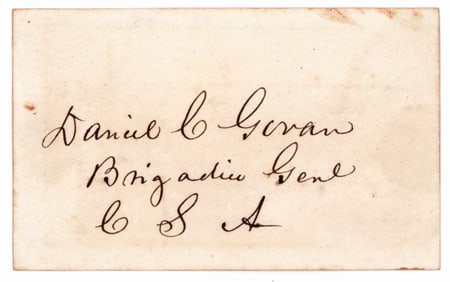 Daniel C Govan
Brigadier Genl
C S A